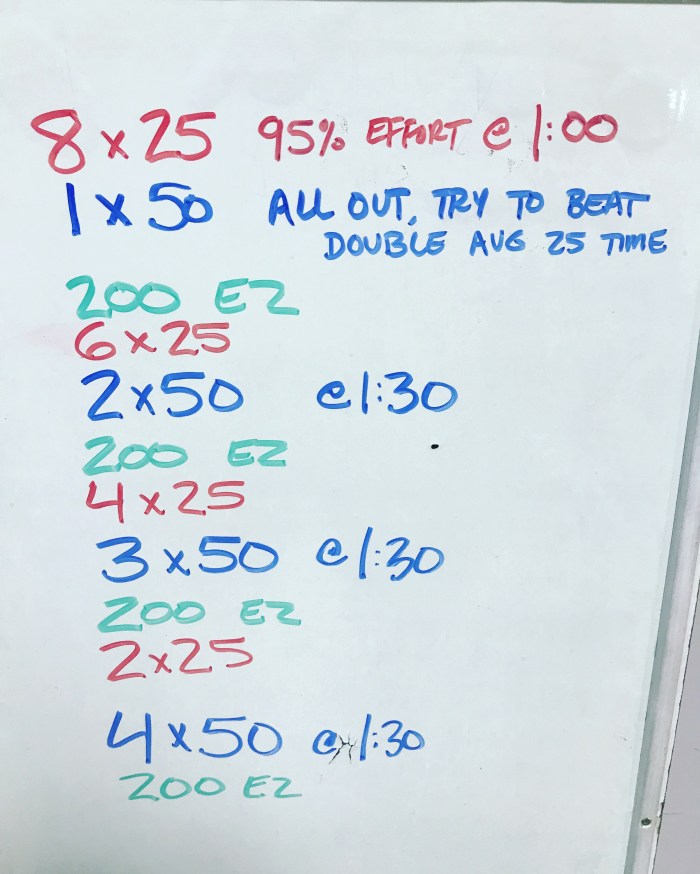 8 x 25 95% EFFORT @ 1:00
1 x 50 ALL OUT, TRY TO BEAT
DOUBLE AVG 25 TIME
200 EZ
6 x 25
2 x 50 @ 1:30
200 EZ
4 x 25
3 x 50 @ 1:30
200 EZ
2 x 25
4 x 50 @ 1:30
200 EZ